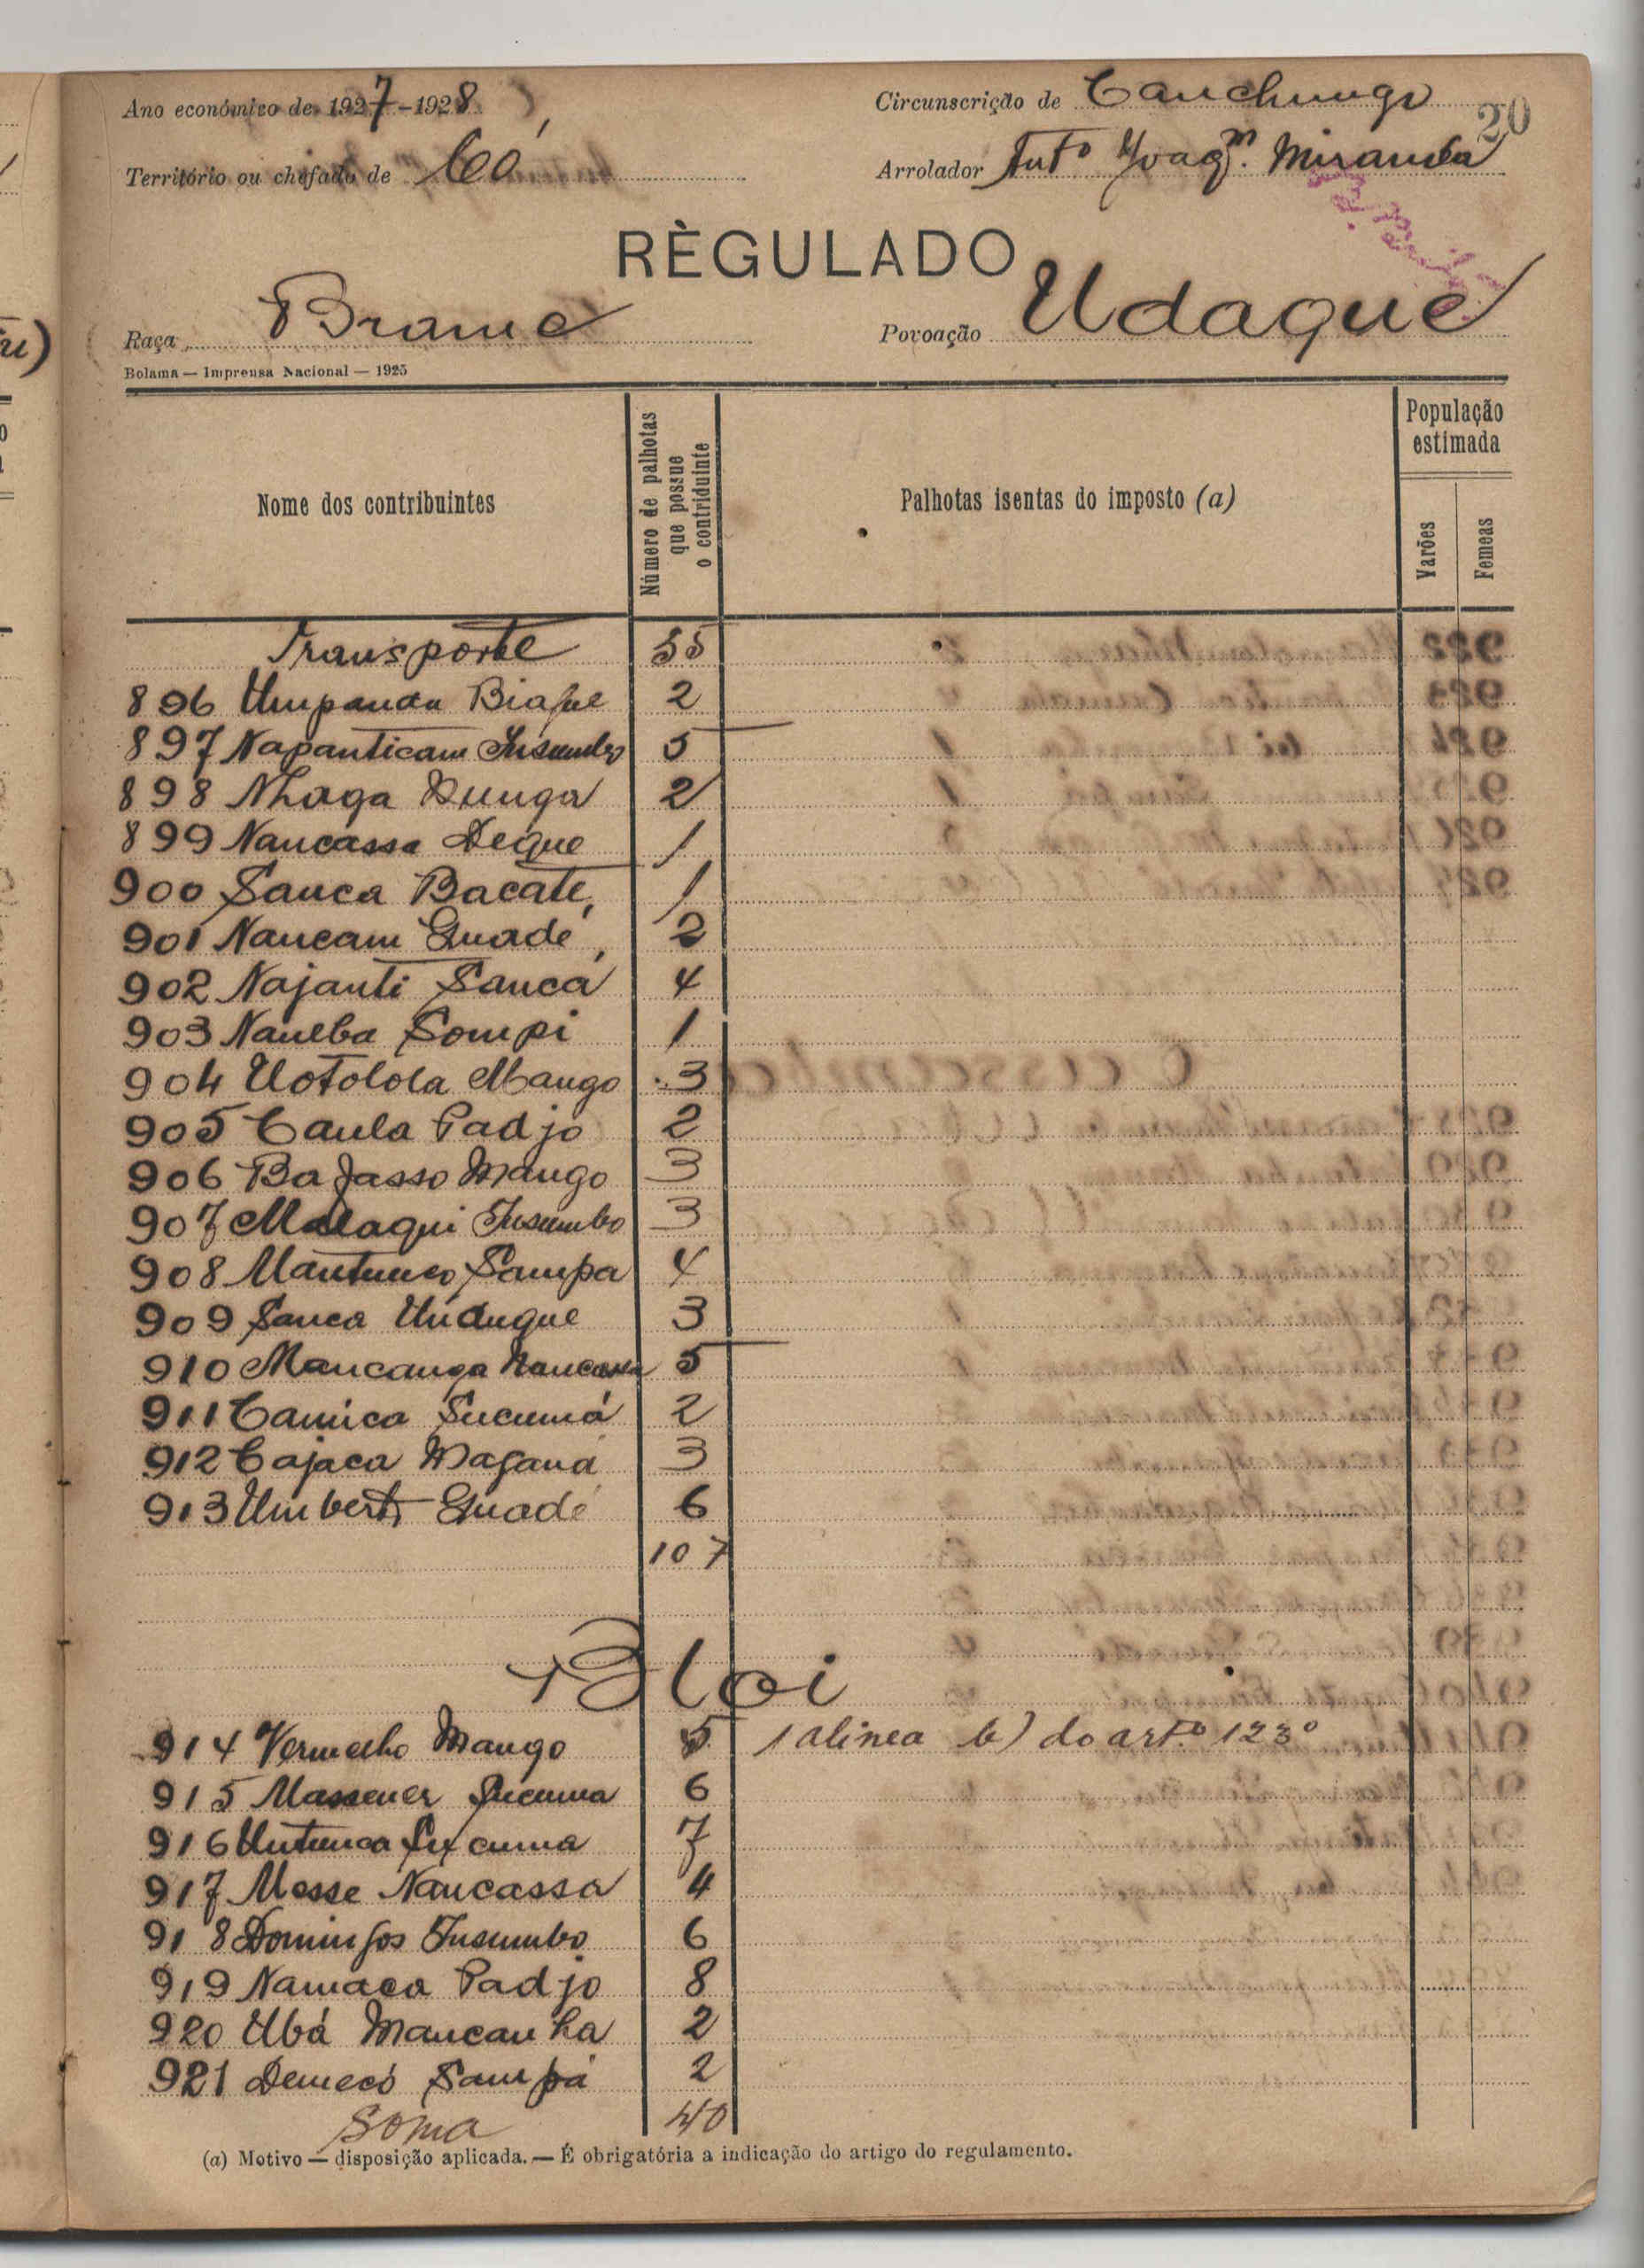 Ano económico de 1927-1928
Circunscrição de Canchungo
20
Território ou chefado de Có
Arrolador Antº Joaqm. Miranda
RÈGULADO
Raça Brame
Povoação Udaque
Bolama — Imprensa Nacional — 1925
Nome dos contribuintes
Número de palhotas que possue o contriduinte
Palhotas isentas do imposto (a)
População estimada
Varões
Femeas
Transporte 55
896 Umpanda Biafue 2
897 Napanticam Insumbo 5
898 Nhaga Dunga 2
899 Naucassa Deque 1
900 Sanca Bacate 1
901 Naucam Quadé 2
902 Najanti Sanca 4
903 Naueba Sompi 1
904 Uotolola Mango 3
905 Caula Padjo 2
906 Bajasso Mango 3
907 Malaqui Insumbo 3
908 Mantuneo Sampa 4
909 Sanca Unduque 3
910 Mancanga Naucassa 5
911 Camica Sucumá 2
912 Cajaca Mafaná 3
913 Umberto Quadé 6
107
Bloi
914 Vermelho Mango 5 1 alinea b) do artº 123º
915 Massener Sucuma 6
916 Untunca Sucuma 7
917 Messe Naucassa 4
918 Domingos Insumbo 6
919 Namaca Padjo 8
920 Ubá Mancanha 2
921 Demecó Sampá 2
Soma 40
(a) Motivo — disposição aplicada. — É obrigatória a indicação do artigo do regulamento.